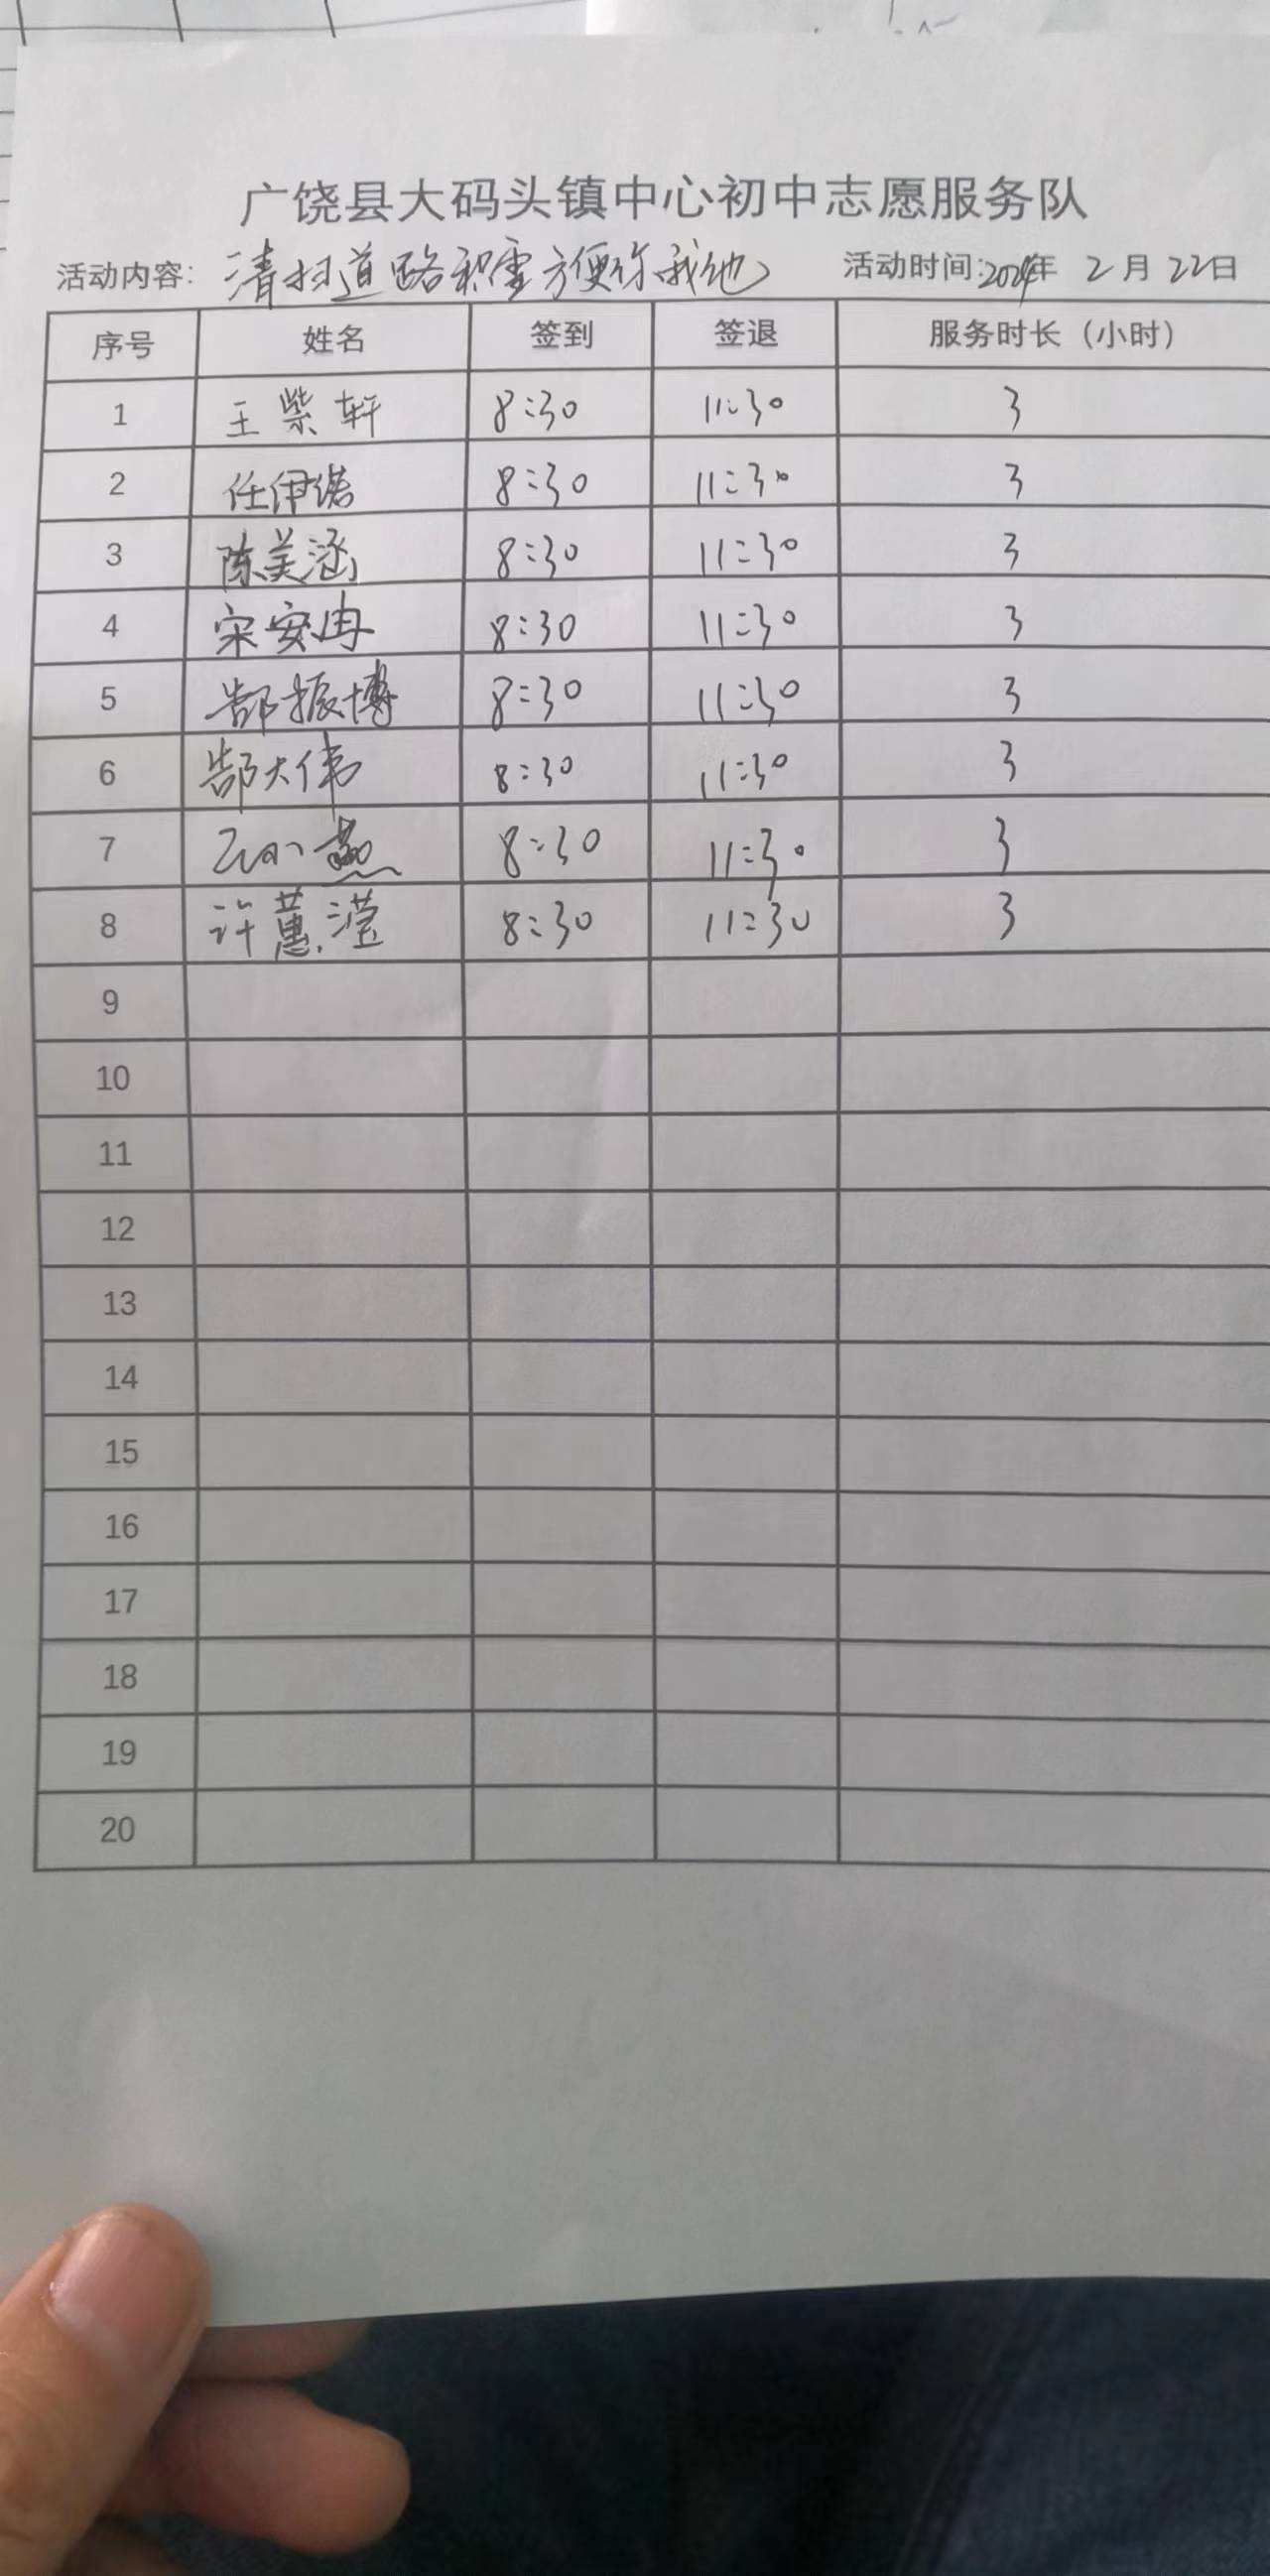 广饶县大码头镇中心初中志愿服务队
活动内容: 清扫道路积雪方便你我他 活动时间:2024年 2月 22日
序号 姓名 签到 签退 服务时长（小时）
1 王紫轩 8:30 11:30 3
2 任伊诺 8:30 11:30 3
3 陈美涵 8:30 11:30 3
4 宋安冉 8:30 11:30 3
5 郜振博 8:30 11:30 3
6 郜大伟 8:30 11:30 3
7 8:30 11:30 3
8 许蕙滢 8:30 11:30 3
9
10
11
12
13
14
15
16
17
18
19
20